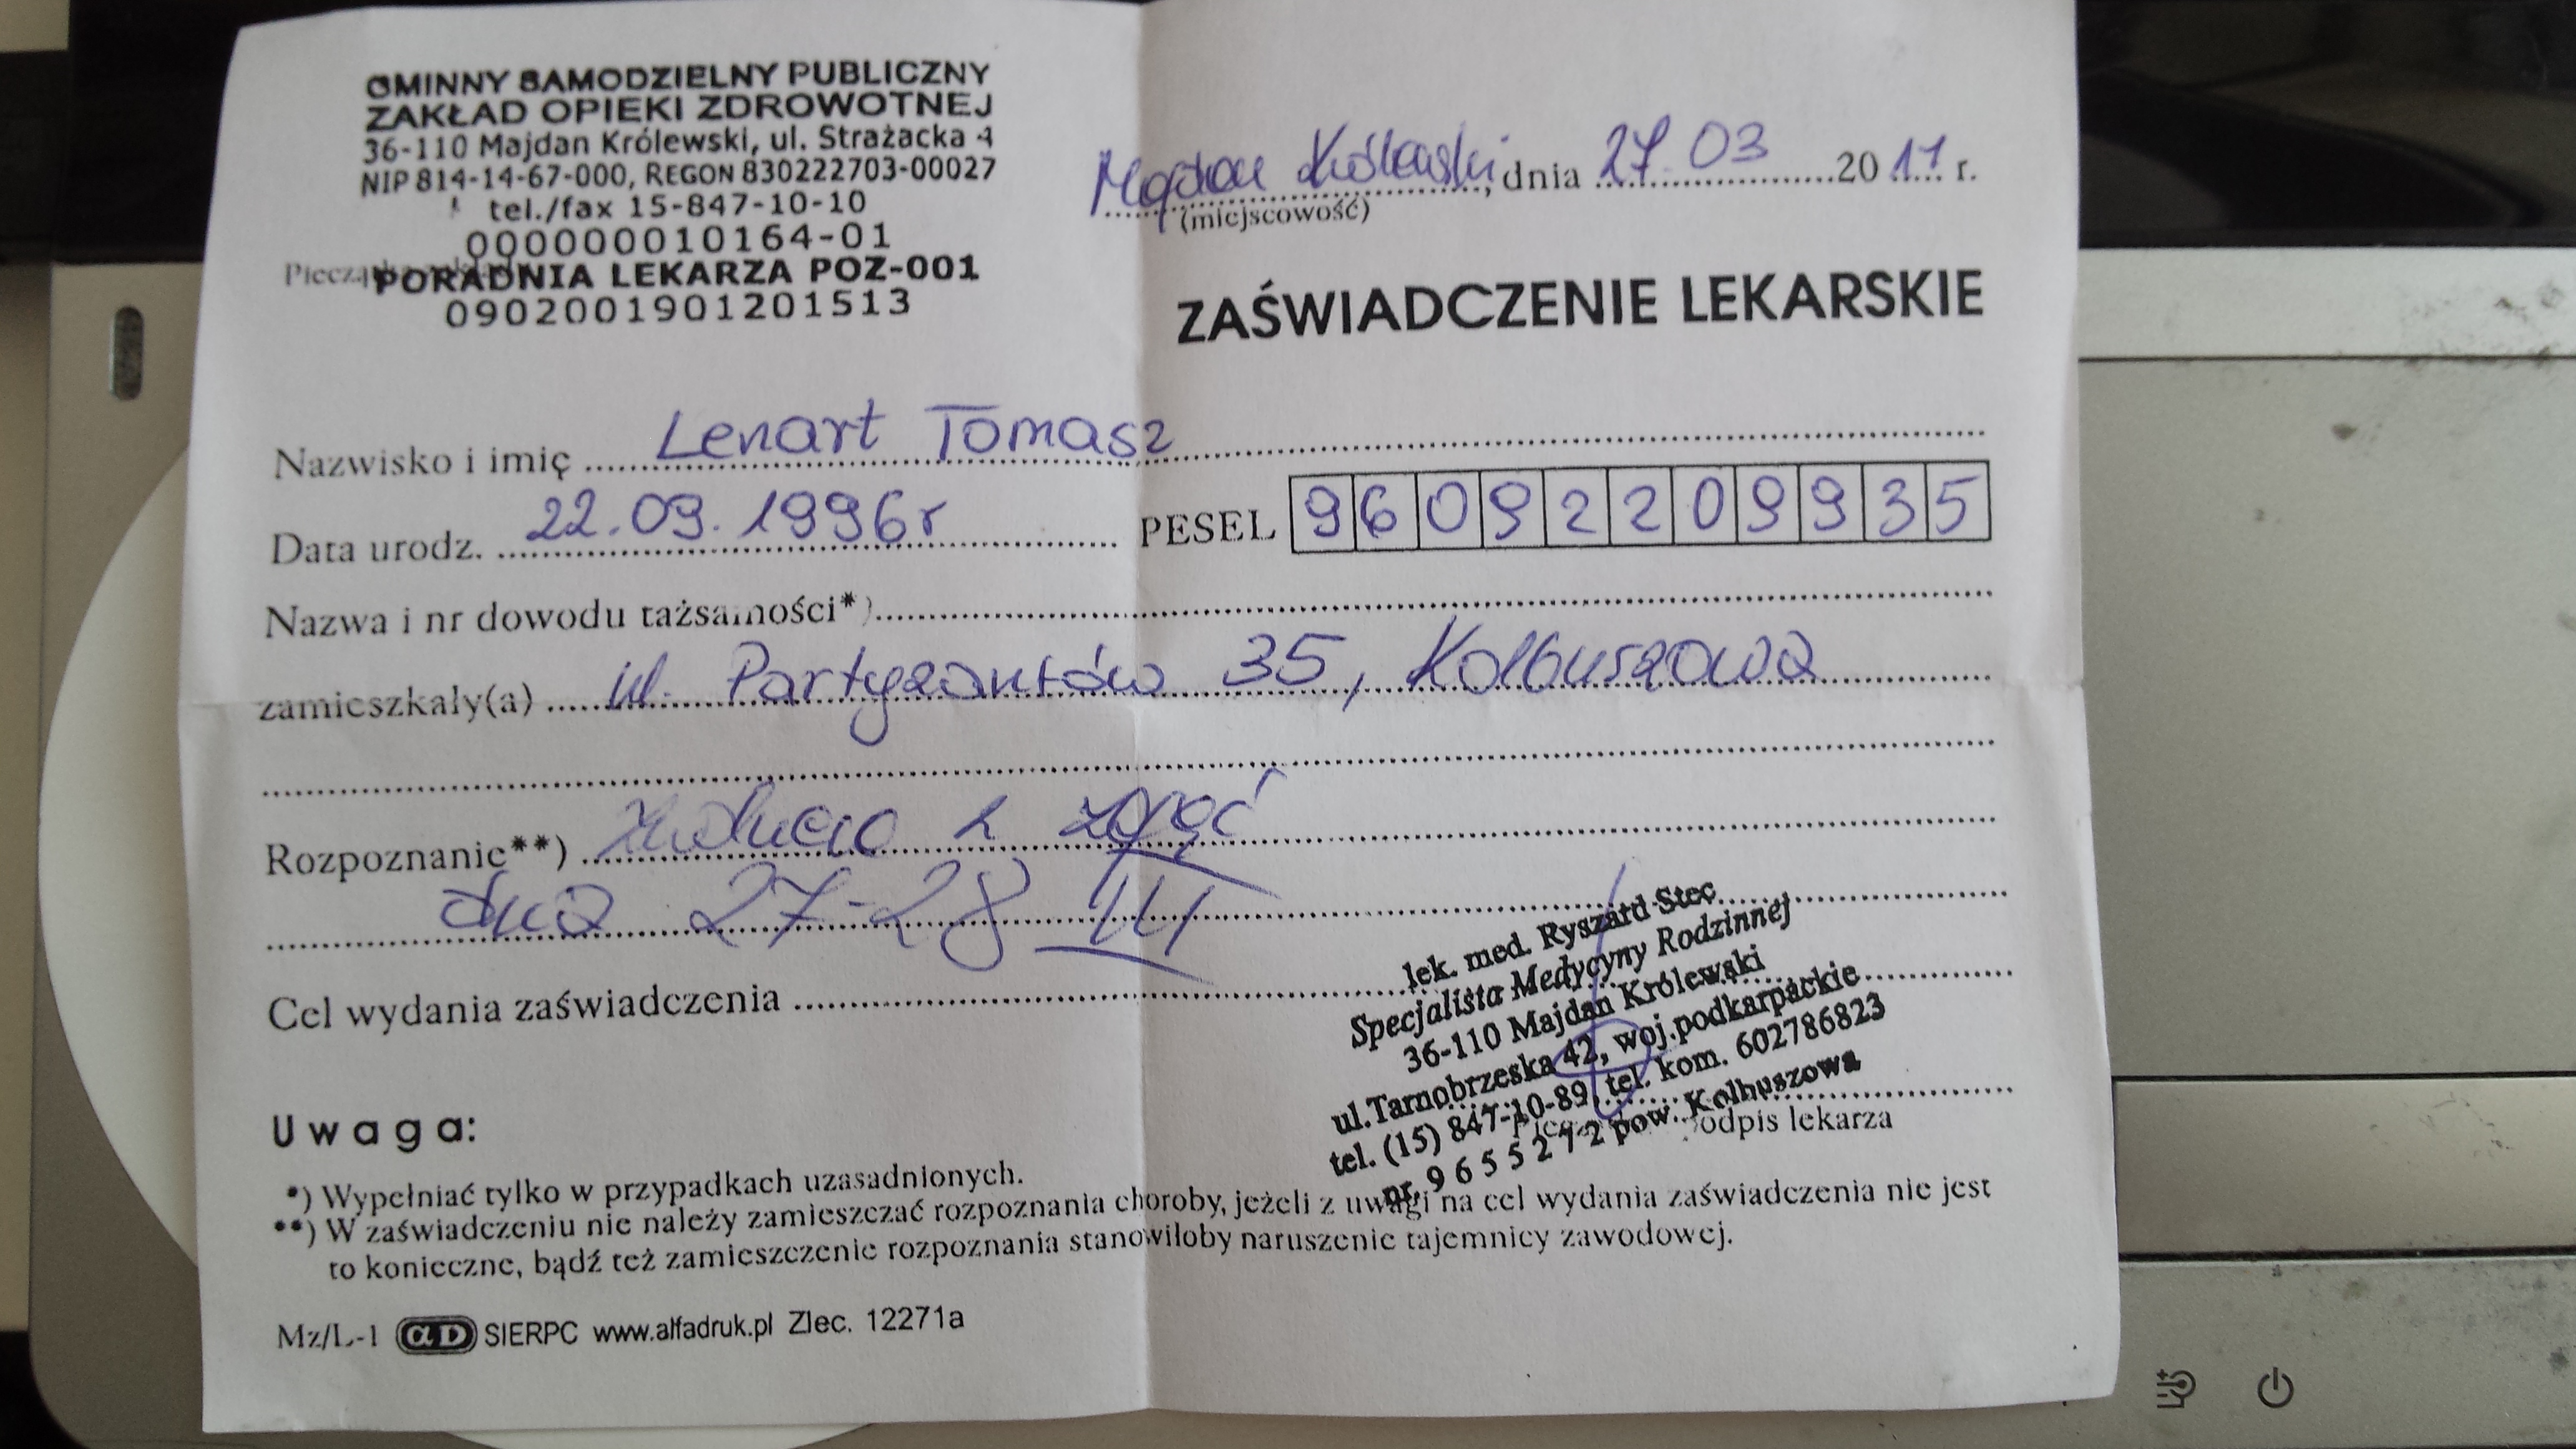 GMINNY SAMODZIELNY PUBLICZNY
ZAKŁAD OPIEKI ZDROWOTNEJ
36-110 Majdan Królewski, ul. Strażacka 4
NIP 814-14-67-000, REGON 830222703-00027
tel./fax 15-847-10-10
000000010164-01
PORADNIA LEKARZA POZ-001
0902001901201513
Majdan Królewski, dnia 27.03 2011 r.
(miejscowość)
ZAŚWIADCZENIE LEKARSKIE
Nazwisko i imię Lenart Tomasz
Data urodz. 22.09.1996r PESEL 96092209935
Nazwa i nr dowodu tażsamości*)
zamieszkały(a) ul. Partyzantów 35, Kolbuszowa
Rozpoznanie**) z zajęć
dnia 27-28 III
Cel wydania zaświadczenia
lek. med. Ryszard Stec
Specjalista Medycyny Rodzinnej
36-110 Majdan Królewski
ul. Tarnobrzeska 42, woj. podkarpackie
tel. (15) 847-10-89, tel. kom. 602786823
nr. 9655272 pow. Kolbuszowa
podpis lekarza
Uwaga:
*) Wypełniać tylko w przypadkach uzasadnionych.
**) W zaświadczeniu nie należy zamieszczać rozpoznania choroby, jeżeli z uwagi na cel wydania zaświadczenia nie jest
to konieczne, bądź też zamieszczenie rozpoznania stanowiłoby naruszenie tajemnicy zawodowej.
Mz/L-1 αD SIERPC www.alfadruk.pl Zlec. 12271a